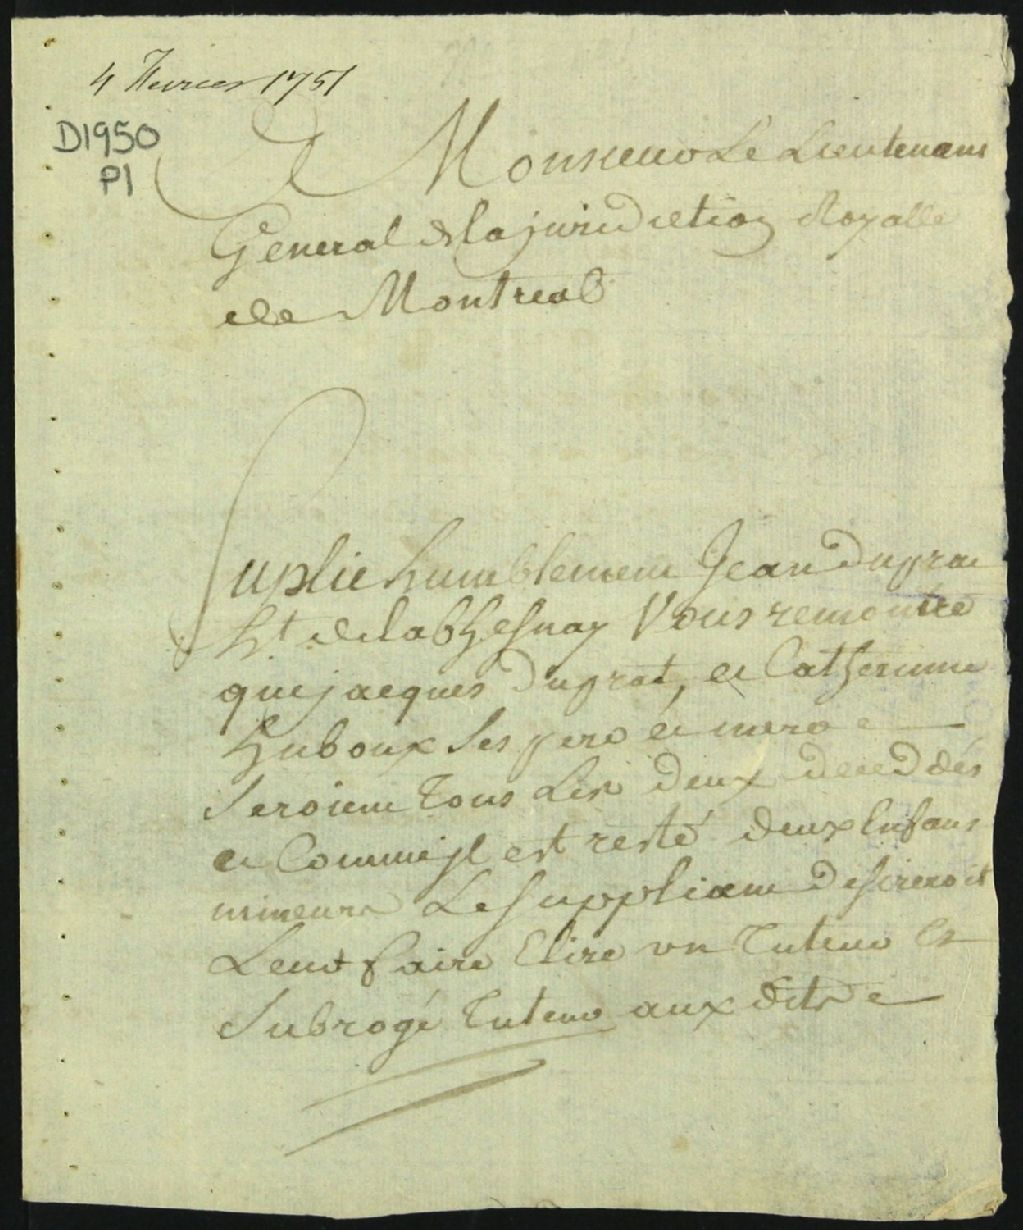 4 Fevrier 1751
D1950
P1
A Monsieur Le Lieutenant
General de la jurisdiction Royalle
de Montreal
Suplie humblement Jean Duprat
ht. de lachesnay Vous remontre
que jacques Duprat, et Catherinne
huboux Ses pere et mere
Seroient Tous Les deux deceddés
et Comme jl est resté deux Enfans
mineurs Le Suppliant desireroit
Leur faire Elire un Tuteur Et
Subrogé Tuteur aux dits